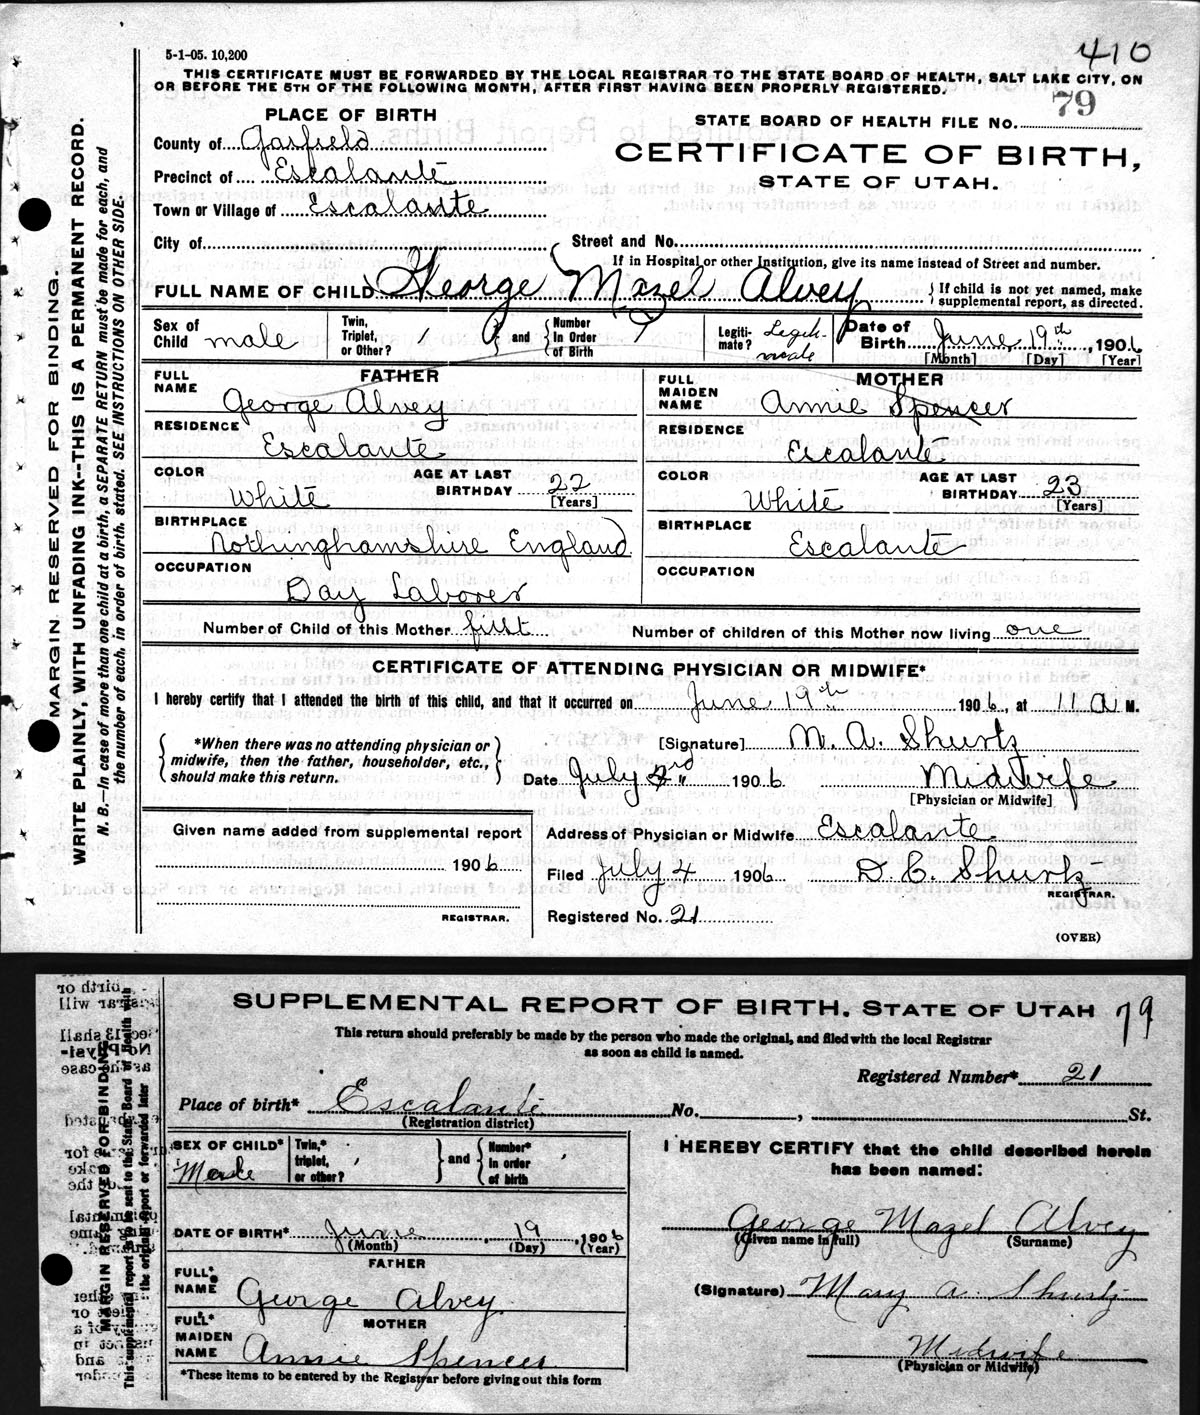 410
5-1-05. 10,200
THIS CERTIFICATE MUST BE FORWARDED BY THE LOCAL REGISTRAR TO THE STATE BOARD OF HEALTH, SALT LAKE CITY, ON
OR BEFORE THE 5TH OF THE FOLLOWING MONTH, AFTER FIRST HAVING BEEN PROPERLY REGISTERED.
79
PLACE OF BIRTH
STATE BOARD OF HEALTH FILE No.
County of Garfield
CERTIFICATE OF BIRTH,
Precinct of Escalante
STATE OF UTAH.
Town or Village of Escalante
City of
Street and No.
If in Hospital or other Institution, give its name instead of Street and number.
FULL NAME OF CHILD George Mazel Alvey
If child is not yet named, make
supplemental report, as directed.
Sex of Child male
Twin, Triplet, or Other?
and Number In Order of Birth
Legiti-mate? Legiti-mate
Date of Birth June 19th, 1906
[Month] [Day] [Year]
FATHER
FULL NAME George Alvey
RESIDENCE Escalante
COLOR White
AGE AT LAST BIRTHDAY 22
[Years]
BIRTHPLACE Nothinghamshire England
OCCUPATION Day Laborer
MOTHER
FULL MAIDEN NAME Annie Spencer
RESIDENCE Escalante
COLOR White
AGE AT LAST BIRTHDAY 23
[Years]
BIRTHPLACE Escalante
OCCUPATION
Number of Child of this Mother first
Number of children of this Mother now living one
CERTIFICATE OF ATTENDING PHYSICIAN OR MIDWIFE*
I hereby certify that I attended the birth of this child, and that it occurred on June 19th 1906, at 11 A M.
*When there was no attending physician or
midwife, then the father, householder, etc.,
should make this return.
[Signature] M. A. Shurtz
Date July 3rd 1906 Midwife
[Physician or Midwife]
Given name added from supplemental report
1906
REGISTRAR.
Address of Physician or Midwife Escalante
Filed July 4 1906 D. C. Shurtz
REGISTRAR.
Registered No. 21
(OVER)
MARGIN RESERVED FOR BINDING.
WRITE PLAINLY, WITH UNFADING INK--THIS IS A PERMANENT RECORD.
N. B.—In case of more than one child at a birth, a SEPARATE RETURN must be made for each, and
the number of each, in order of birth, stated. SEE INSTRUCTIONS ON OTHER SIDE.
SUPPLEMENTAL REPORT OF BIRTH. STATE OF UTAH 79
This return should preferably be made by the person who made the original, and filed with the local Registrar
as soon as child is named.
Registered Number* 21
Place of birth* Escalante No. , St.
(Registration district)
SEX OF CHILD* Male
Twin,* triplet, or other?
and Number* in order of birth
DATE OF BIRTH* June 19, 1906
(Month) (Day) (Year)
FATHER
FULL* NAME George Alvey
MOTHER
FULL* MAIDEN NAME Annie Spencer
*These items to be entered by the Registrar before giving out this form
I HEREBY CERTIFY that the child described herein
has been named:
George Mazel Alvey
(Given name in full) (Surname)
(Signature) Mary A. Shurtz
Midwife
(Physician or Midwife)
MARGIN RESERVED FOR BINDING
This supplemental report is to be sent to the State Board of Health with
the original report or forwarded later